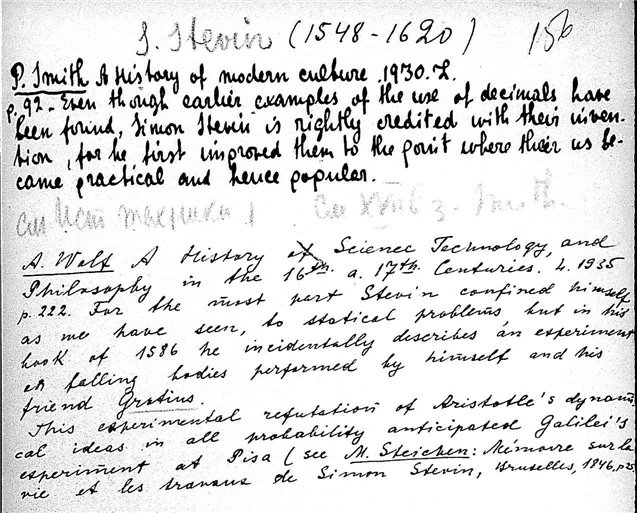 S. Stevin (1548-1620) 156
P. Smith A History of modern culture. 1930. L.
p. 92 - Even though earlier examples of the use of decimals have
been found, Simon Stevin is rightly credited with their inven-
tion, for he first improved them to the point where their us be-
came practical and hence popular.
см Ист техники 1 см XVII б 3 - Smith.
A. Wolf A History of Science Technology, and
Philosophy in the 16th a. 17th Centuries. L. 1935
p. 222. For the most part Stevin confined himself,
as we have seen, to statical problems, but in his
book of 1586 he incidentally describes an experiment
on falling bodies performed by himself and his
friend Grotius.
This experimental refutation of Aristotle's dynami
cal ideas in all probability anticipated Galilei's
experiment at Pisa (see M. Steichen: Mémoire sur la
vie et les travaus de Simon Stevin, Bruxelles, 1846, p 25